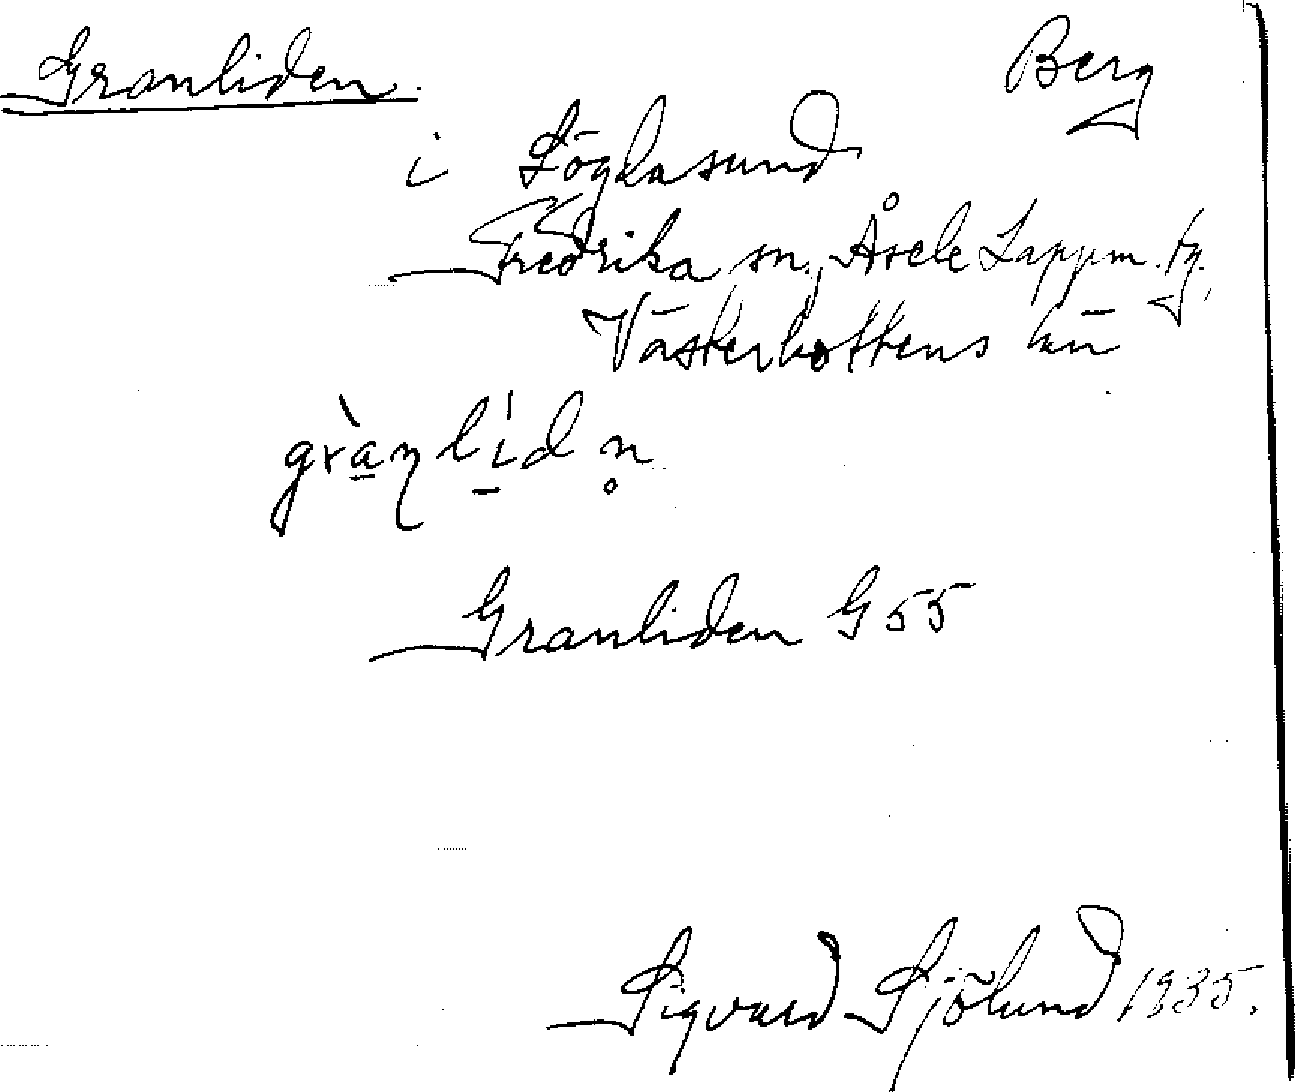 Granliden. Berg
i Lögdasund
Fredrika sn, Åsele Lappm. tg.,
Västerbottens län
gràṉlídn̥
Granliden G 55
Sigvard Sjölund 1935.